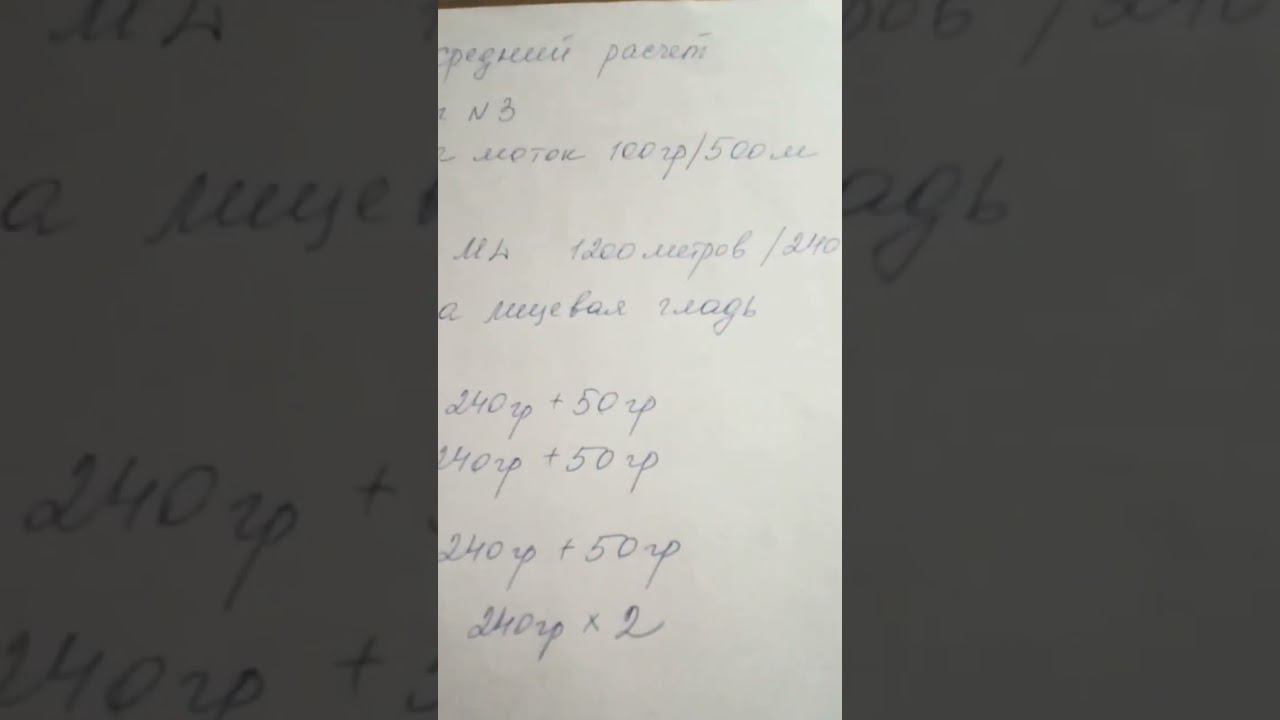 средний расчет
N 3
моток 100гр/500м
ML 1200метров /240
а лицевая гладь
240гр + 50гр
240гр + 50гр
240гр + 50гр
240гр x 2